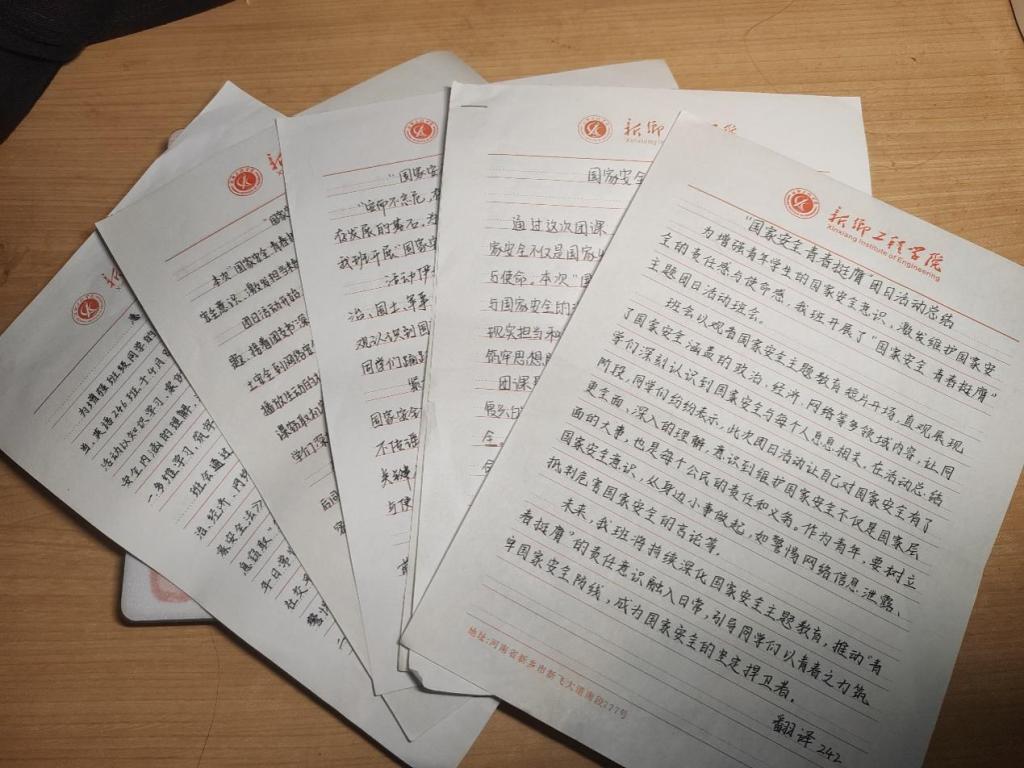 为增强班级同学的
当,英语246班于4月
活动以知识学习、案
安全内涵的理解
一步推学习,筑牢
班会通过
治、经济、网
平日常
本次“国家安全 青春挺
安全意识、激发担当精
团日活动开始
土安全到网络安全
播放生动的
学们深
“国家安
在发展的基石。为
我班开展“国家安
治、国土、军事
观认识到国
同学们踊
国家安全
不传谣
关键
与使
新乡
Xinxiang Institute
国家安全
通过这次团课
家安全不仅是国家
与使命。本次“国
与国家安全的
现实担当和
筑牢思想
团课
新乡工程学院
Xinxiang Institute of Engineering
“国家安全 青春挺膺”团日活动总结
为增强青年学生的国家安全意识、激发维护国家安
全的责任感与使命感,我班开展了“国家安全 青春挺膺”
主题团日活动班会。
班会以观看国家安全主题教育短片开场,直观展现
了国家安全涵盖的政治、经济、网络等多领域内容,让同
学们深刻认识到国家安全与每个人息息相关。在活动总结
阶段,同学们纷纷表示,此次团日活动让自己对国家安全有了
更全面、深入的理解,意识到维护国家安全不仅是国家层
面的大事,也是每个公民的责任和义务。作为青年,要树立
国家安全意识,从身边小事做起,如警惕网络信息泄露、
抵制危害国家安全的言论等。
未来,我班将持续深化国家安全主题教育,推动“青
春挺膺”的责任意识融入日常,引导同学们以青春之力筑
牢国家安全防线,成为国家安全的坚定捍卫者。
翻译242
地址:河南省新乡市新飞大道南段777号